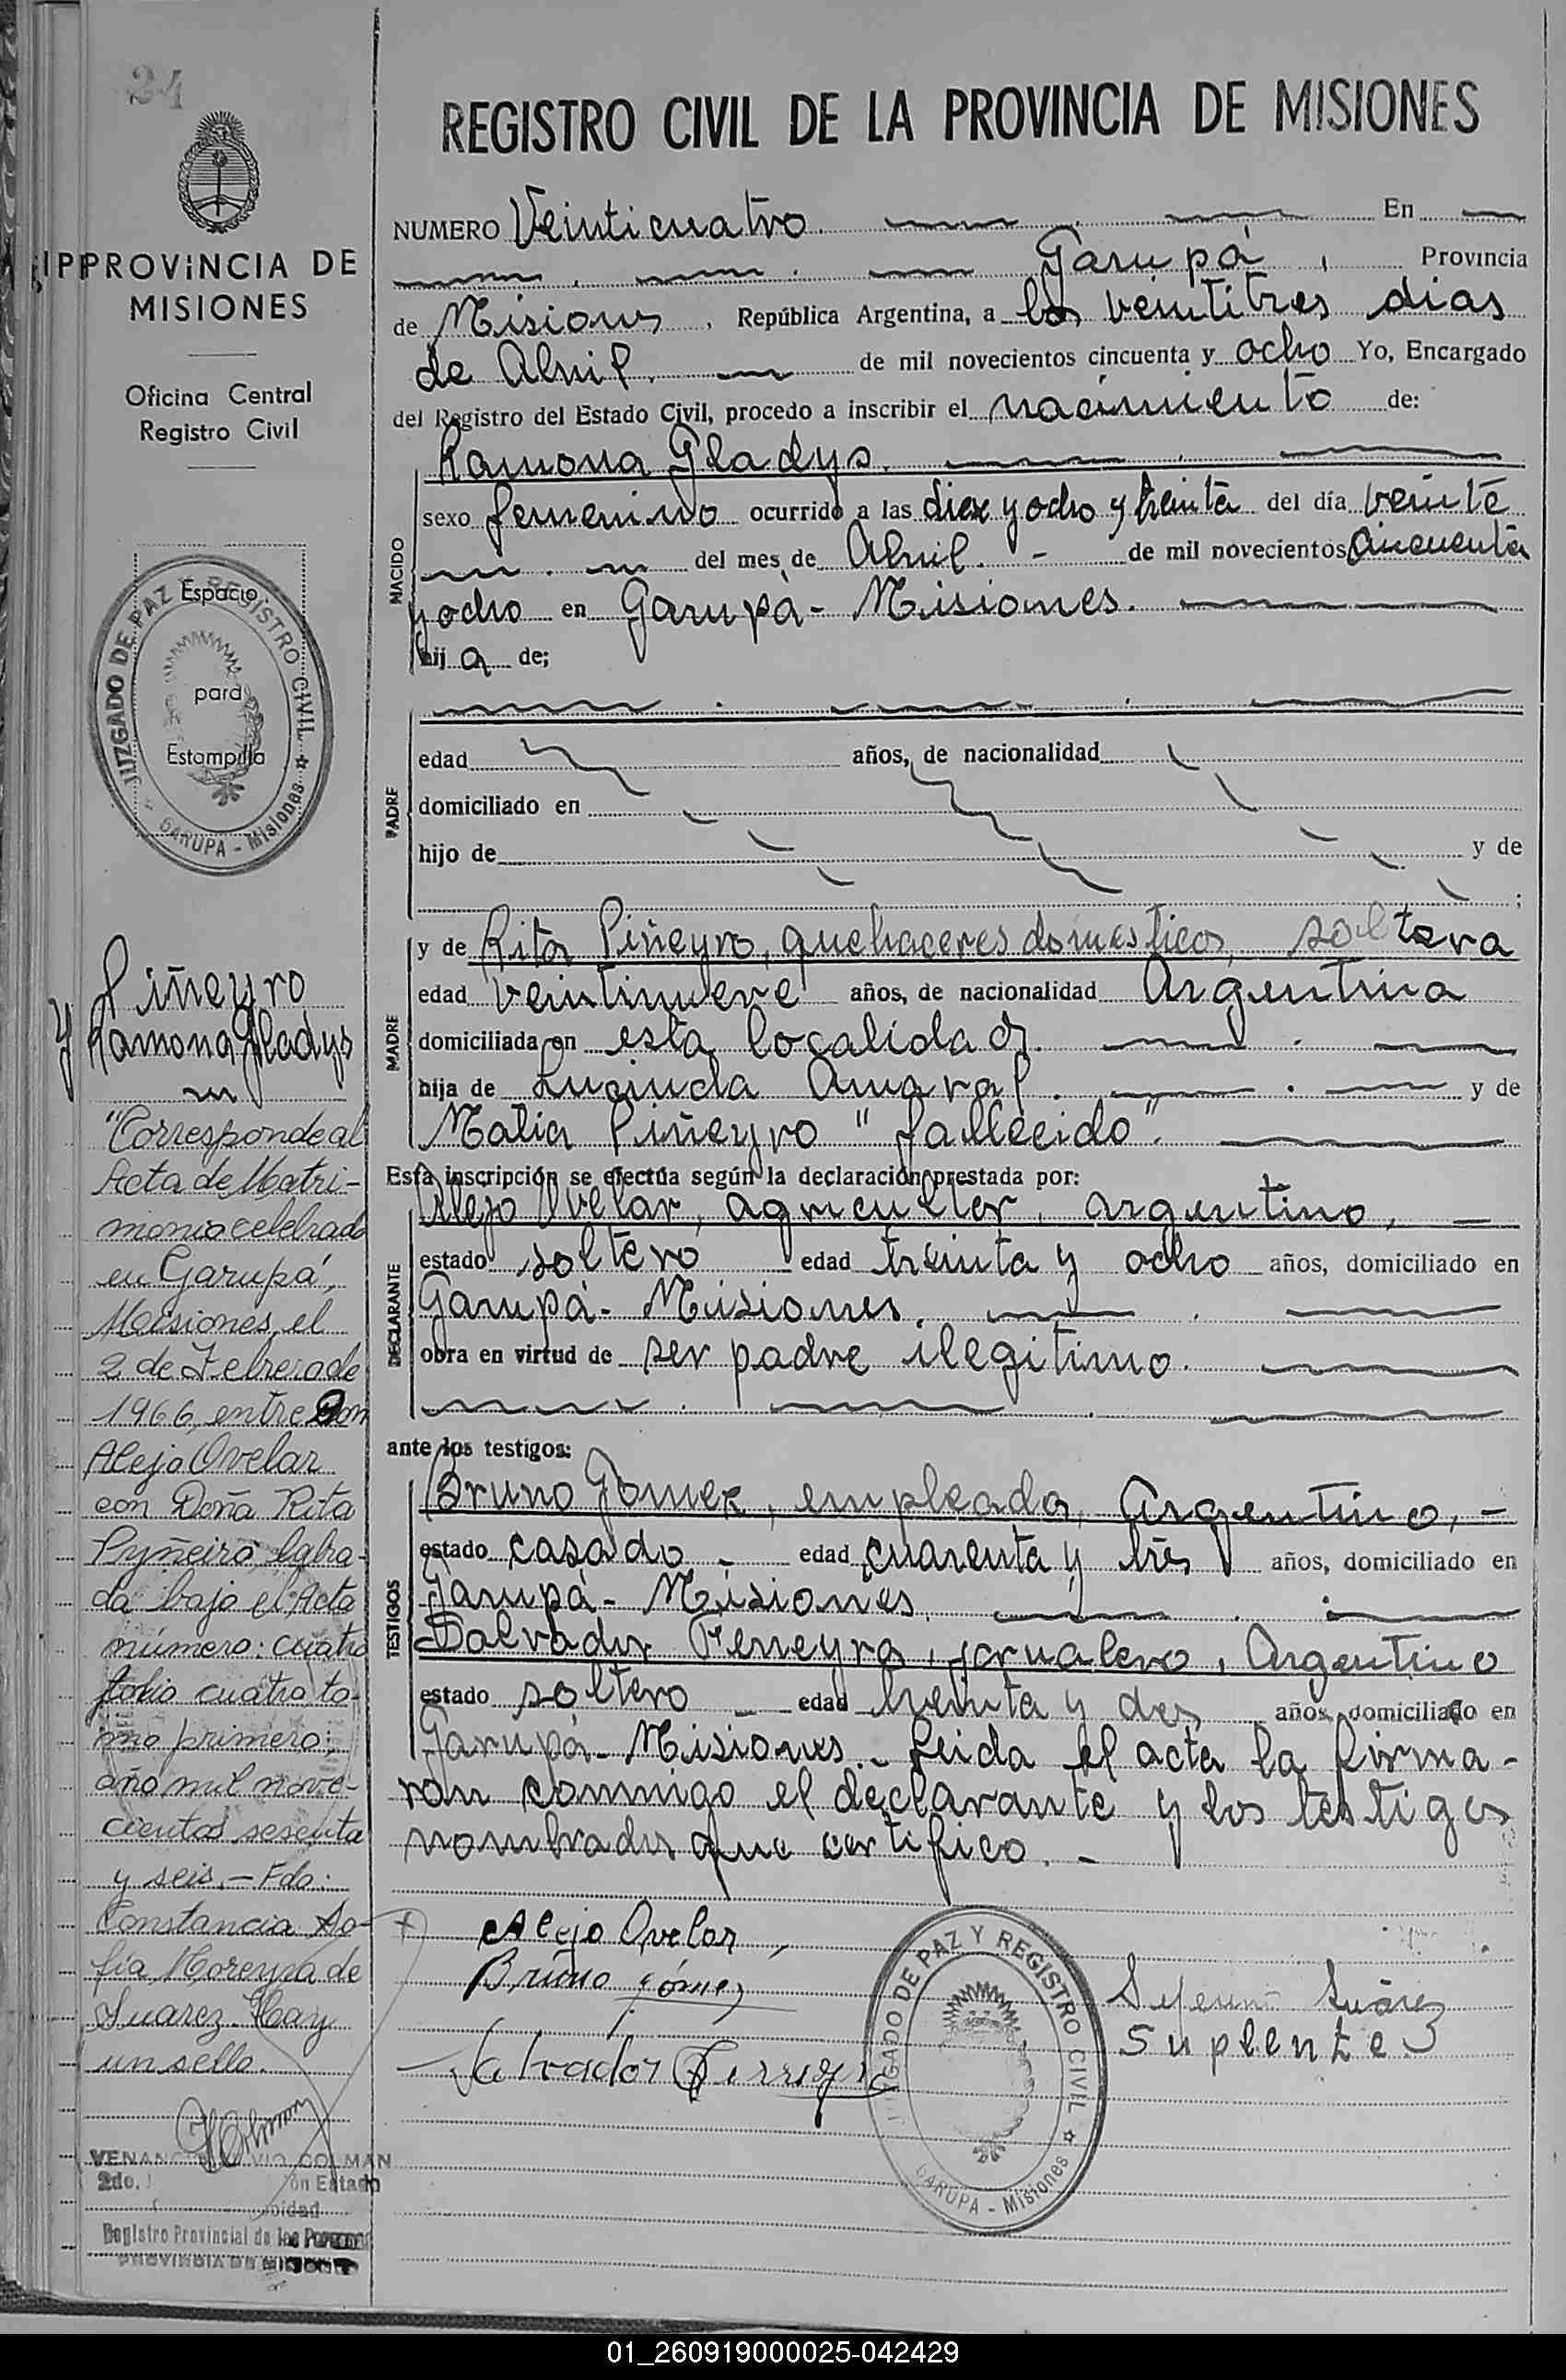 24
REGISTRO CIVIL DE LA PROVINCIA DE MISIONES
PROVINCIA DE
MISIONES
Oficina Central
Registro Civil
Espacio
para
Estampilla
JUZGADO DE PAZ Y REGISTRO CIVIL
GARUPA - Misiones
Piñeyro
Ramona Gladys
"Corresponde al
Acta de Matri-
monio celebrado
en Garupá,
Misiones, el
2 de Febrero de
1966, entre Don
Alejo Ovelar
con Doña Rita
Pyñeiro, labra-
da bajo el Acta
número: cuatro
folio cuatro to-
mo primero;
año mil nove-
cientos sesenta
y seis.- Fdo:
Constancia So-
fía Moreyra de
Suarez. Hay
un sello.
COLMAN
2do.
Registro Provincial de las
PROVINCIA DE
NUMERO Veinticuatro. En
Garupá, Provincia
de Misiones, República Argentina, a los veintitres dias
de Abril. de mil novecientos cincuenta y ocho Yo, Encargado
del Registro del Estado Civil, procedo a inscribir el nacimiento de:
Ramona Gladys.
NACIDO
sexo femenino ocurrido a las diez y ocho y treinta del día veinte
del mes de Abril. - de mil novecientos cincuenta
y ocho en Garupá - Misiones.
hij a de;
PADRE
edad años, de nacionalidad
domiciliado en
hijo de y de
;
MADRE
y de Rita Piñeyro, quehaceres domesticos, soltera
edad veintinueve años, de nacionalidad Argentina
domiciliada en esta localidad.
hija de Lucinda Amaral. y de
Matia Piñeyro "fallecido".
Esta inscripción se efectúa según la declaración prestada por:
DECLARANTE
Alejo Ovelar, agricultor, argentino, -
estado soltero edad treinta y ocho años, domiciliado en
Garupá - Misiones.
obra en virtud de ser padre ilegitimo.
ante los testigos:
TESTIGOS
Bruno Gomez, empleado, Argentino, -
estado casado - edad cuarenta y tres años, domiciliado en
Garupá - Misiones.
Salvador Ferreyra, jornalero, Argentino
estado soltero edad treinta y dos años, domiciliado en
Garupá - Misiones. - Leida el acta la firma-
ran conmigo el declarante y los testigos
nombrados que certifico. -
Alejo Ovelar
Bruno Gómez
Salvador Ferreyra
Suárez
Suplente
JUZGADO DE PAZ Y REGISTRO CIVIL
GARUPA - Misiones
01_260919000025-042429